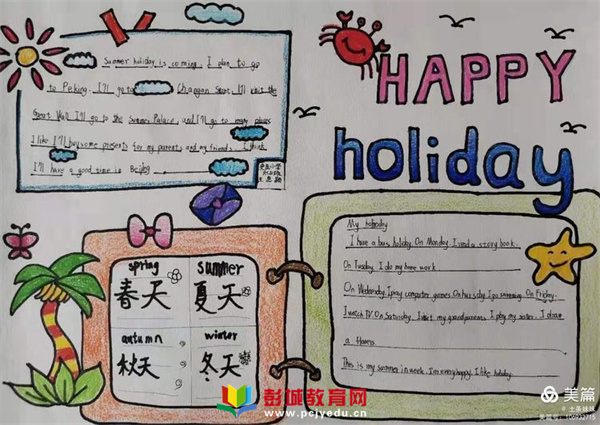 Summer holiday is coming. I plan to go
to Peking. I'll go to Changan Street I'll visit the
Great Wall I'll go to the Summer Palace, and I'll go to many places
I like I'll buy some presents for my parents and my friends. I think
I'll have a good time in Beijing
HAPPY
holiday
spring
春天
summer
夏天
autumn
秋天
winter
冬天
My holiday
I have a bus holiday On Monday I read a story book.
On Tuesday I do my home work
On Wednesday I play computer games On hursday I go swimming On Friday.
I watch TV On Saturday. I visit my grandparents I play my sister. I draw
a
This is my summer in week. I'm very happy. I like holiday
彭城教育网
www.pcjyedu.cn
美篇